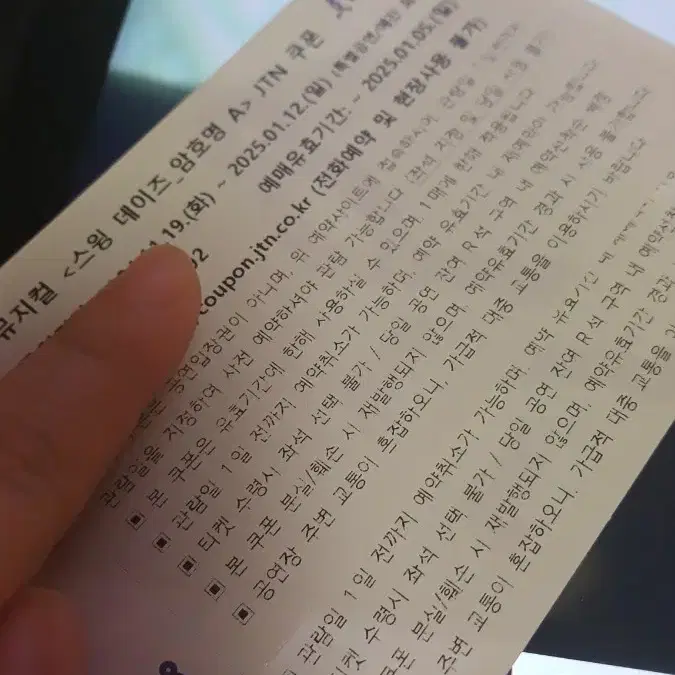 뮤지컬 <스윙 데이즈_암호명 A> JTN 쿠폰
1.19.(화) ~ 2025.01.12.(일)
예매유효기간: ~ 2025.01.05.(일)
coupon.jtn.co.kr (전화예약 및 현장사용 불가)
공연입장권이 아니며, 위 예약사이트에 접속하시어
관람일을 지정하여 사전 예약하셔야 관람 가능합니다
▣ 본 쿠폰은 유효기간에 한해 사용하실 수 있으며, 1매에 한해 적용됩니다
▣ 관람일 1일 전까지 예약취소가 가능하며, 예약 유효기간 내 재예매가 가능합니다
▣ 티켓 수령시 좌석 선택 불가 / 당일 공연 잔여 R석 구역 내 예약선착순 배정
▣ 본 쿠폰 분실/훼손 시 재발행되지 않으며, 예약유효기간 경과 시 사용 불가합니다
▣ 공연장 주변 교통이 혼잡하오니, 가급적 대중 교통을 이용하시기 바랍니다
관람일 1일 전까지 예약취소가 가능하며, 예약 유효기간 내
티켓 수령시 좌석 선택 불가 / 당일 공연 잔여 R석 구역 내 예약선착
쿠폰 분실/훼손 시 재발행되지 않으며, 예약유효기간 경과
주변 교통이 혼잡하오니, 가급적 대중 교통을